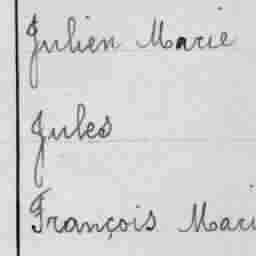 Julien Marie
Jules
François Mari